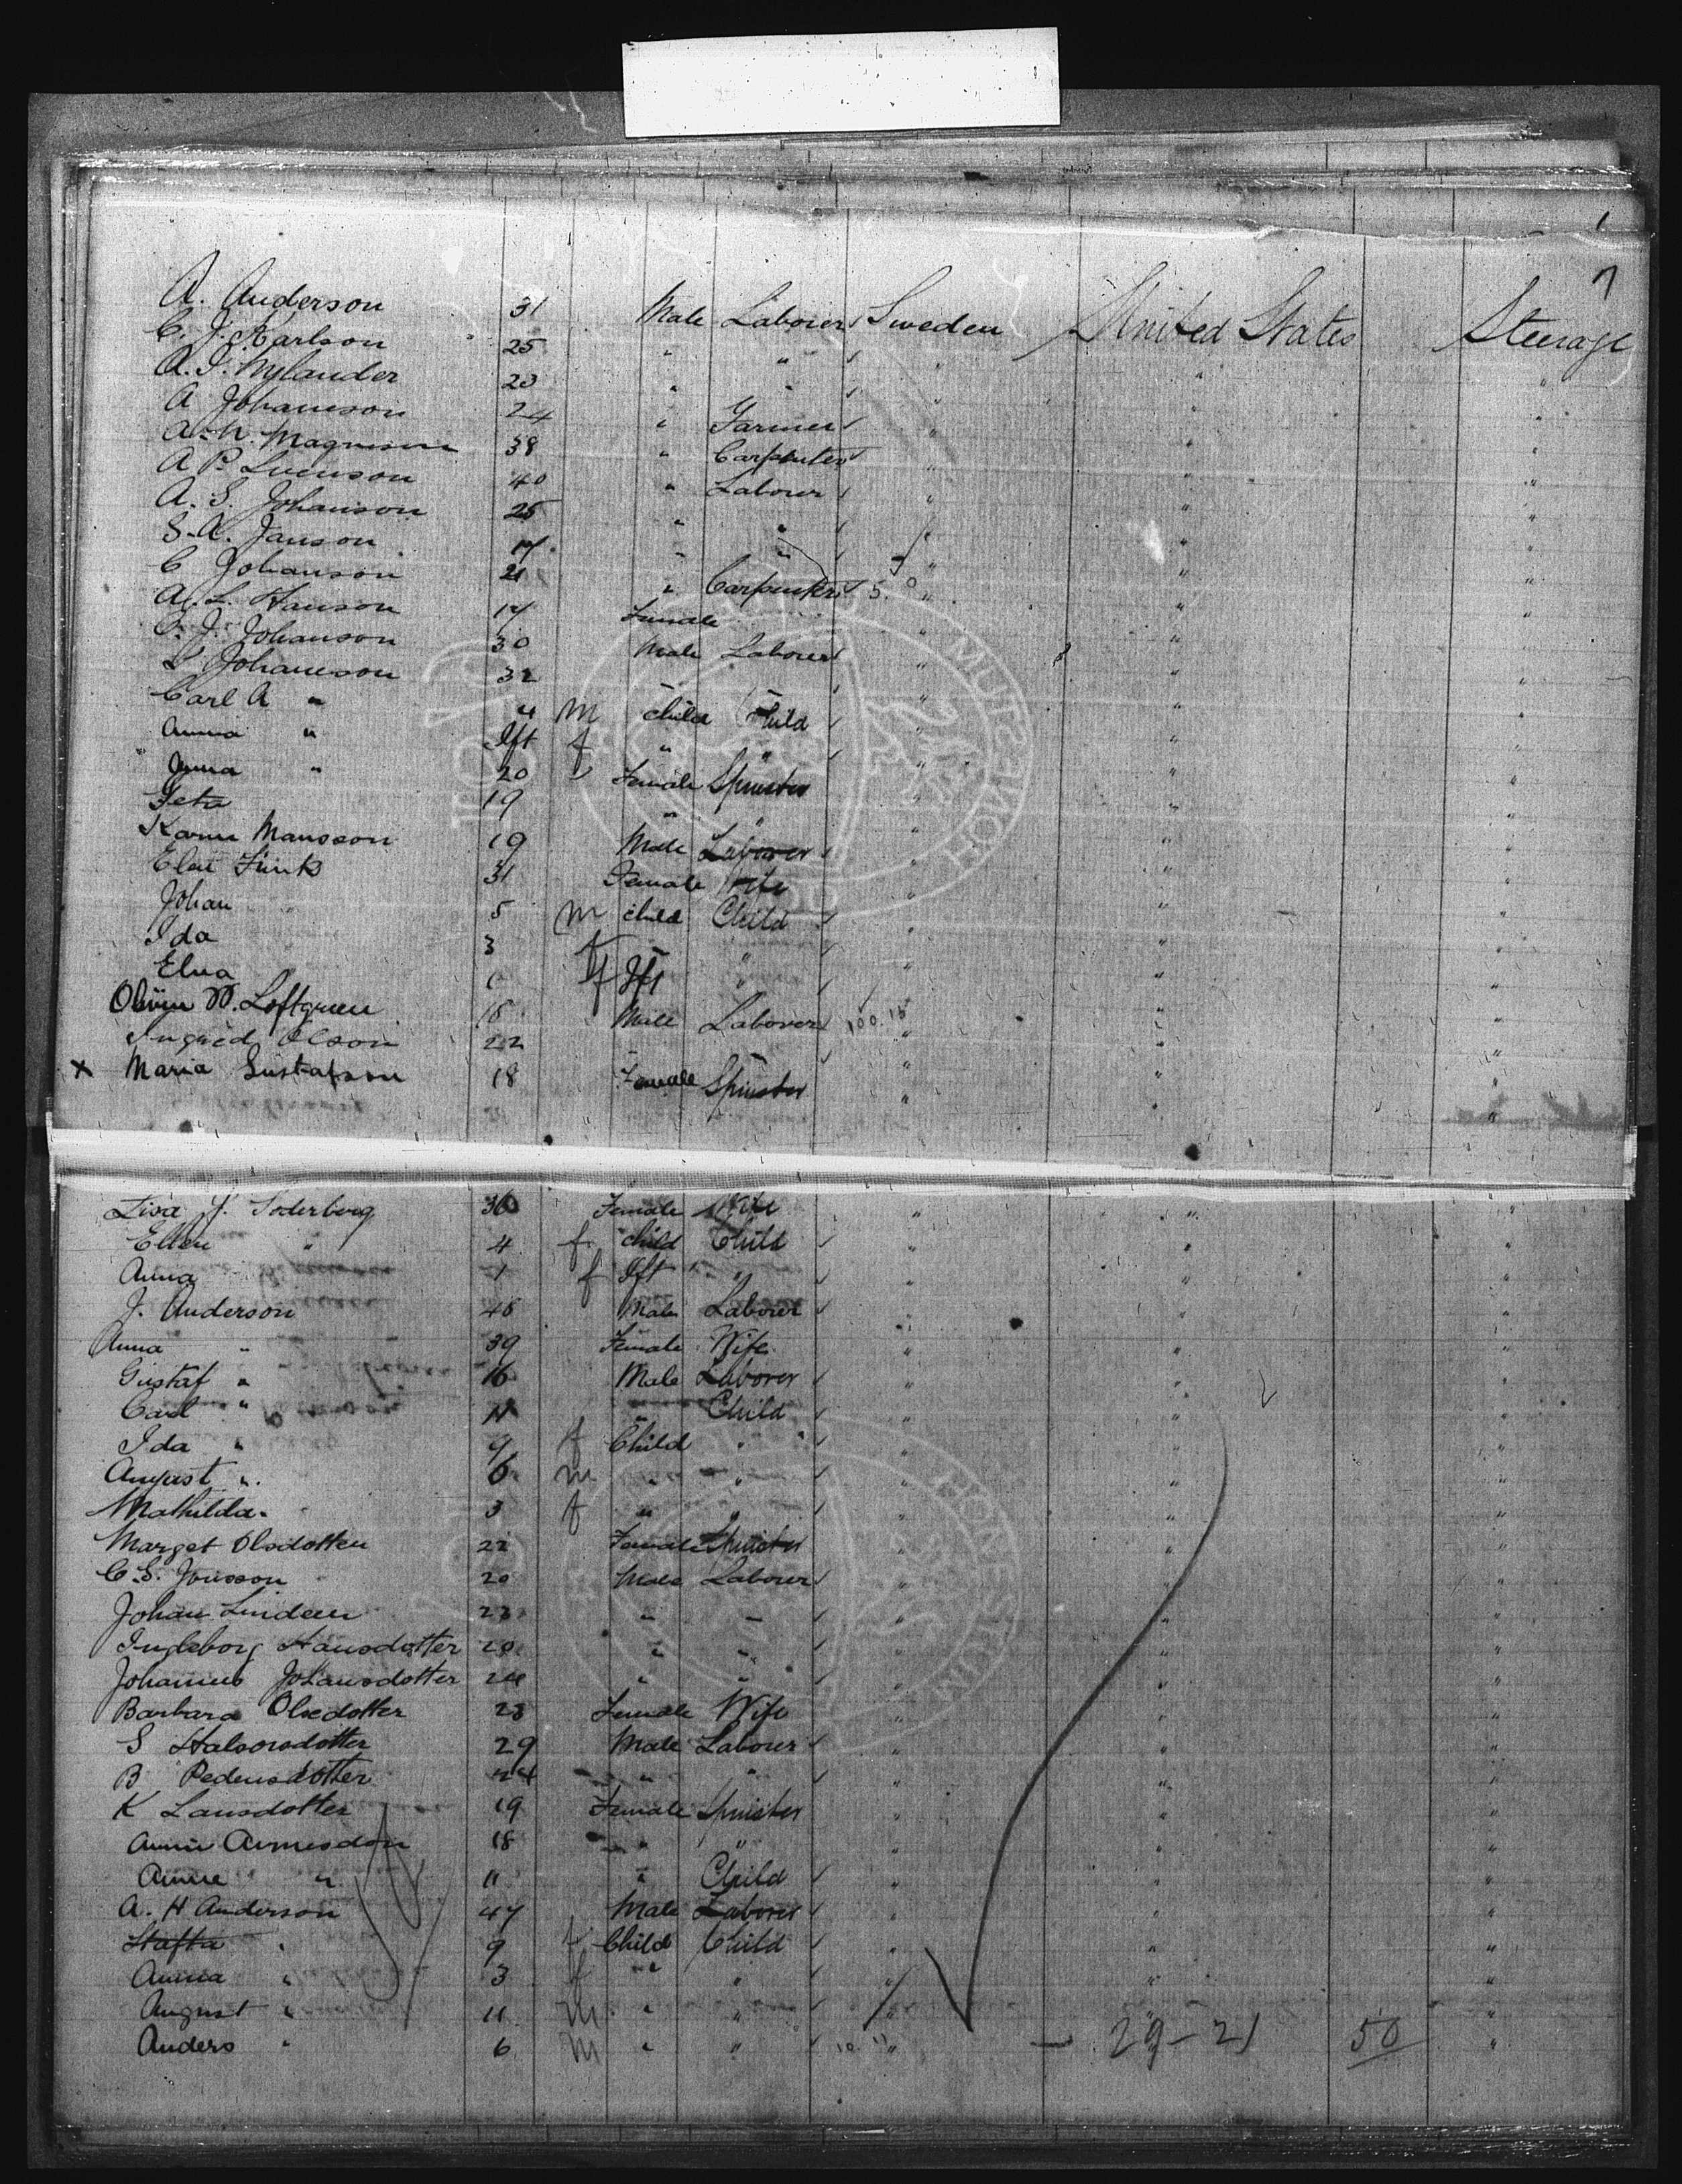 7
A. Anderson 31 Male Laborer Sweden United States Steerage
C. J. Karlson 25 " " " " "
A. F. Nylander 23 " " " " "
A Johanson 24 " Farmer " " "
A. N. Magnuson 38 " Carpenter " " "
A P. Svenson 40 " Laborer " " "
A. S. Johanson 25 " " " " "
S. A. Janson 17 " " " " "
C Johanson 21 " Carpenter " " "
A. L. Hanson 17 Female " " "
C. J. Johanson 30 Male Laborer " " "
L Johanson 32 " " " " "
Carl A " 4 m child Child " " "
Anna " Ift f " " " " "
Anna " 20 Female Spinster " " "
19 " " " " "
Mansson 19 Male Laborer " " "
31 Female Wife " " "
Johan 5 m child Child " " "
Ida 3 f " " " " "
Elna 1 f Ift " " " "
W. Loftgreen 18 Male Laborer " " "
Ingrid Olson 22 " " " " "
x Maria Gustafson 18 Female Spinster " " "
Lisa J. Soderberg 36 Female Wife " " "
Ellen " 4 f child Child " " "
Anna 1 f Ift " " " "
J. Anderson 46 Male Laborer " " "
Anna " 39 Female Wife " " "
Gustaf " 16 Male Laborer " " "
Carl " 11 " Child " " "
Ida " 9 f Child " " " "
August " 6 m " " " " "
Mathilda " 3 f " " " " "
Marget Olsdotter 22 Female Spinster " " "
C. S. Jonsson 20 Male Laborer " " "
Johan Lindeen 23 " " " " "
Ingleborg Hansdotter 20 " " " " "
Johannes Johansdotter 24 " " " " "
Barbara Olsedotter 23 Female Wife " " "
S Halvorsdotter 29 Male Laborer " " "
B Pedersdotter 24 " " " " "
K Larsdotter 19 Female Spinster " " "
18 " " " " "
11 " Child " " "
A. H Anderson 47 Male Laborer " " "
Stafta " 9 f Child Child " " "
Anna " 3 f " " " " "
August " 11 m " " " " "
Anders " 6 m " " " 29-21 50 "